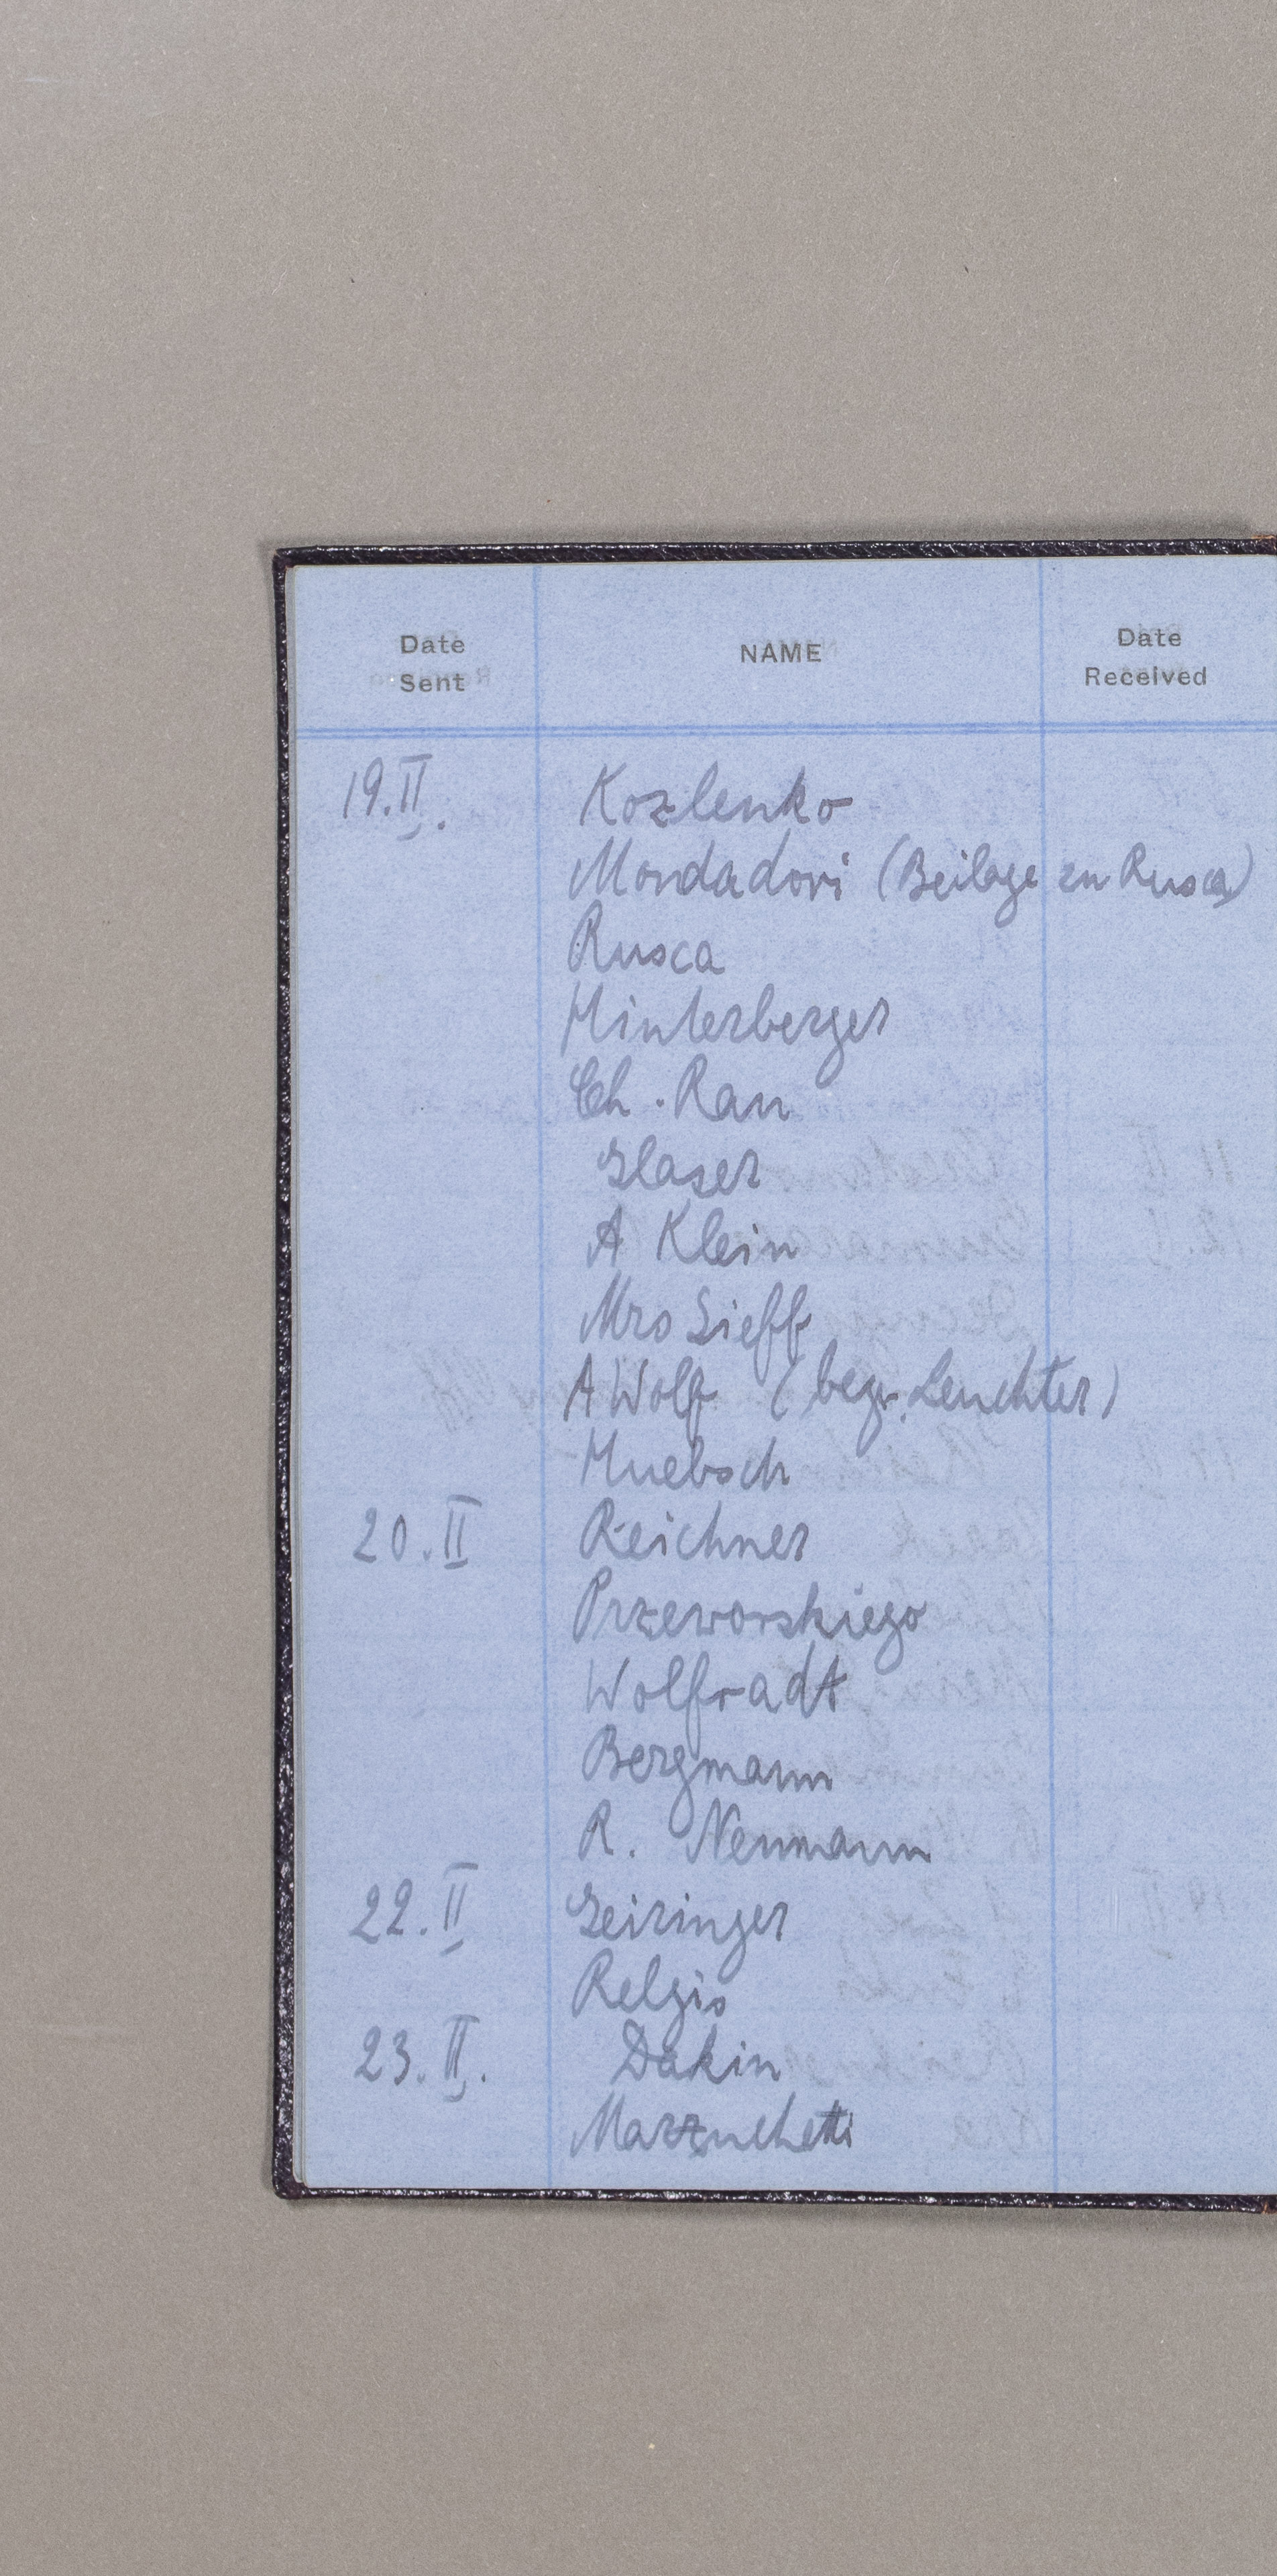 Date Sent NAME Date Received
19.II. Kozlenko
Mondadori (Beilage zu Rusca)
Rusca
Hinterberger
Ch. Rau
Glaser
A Klein
Mrs Sieff
A Wolf (bezw. Leuchter)
Huebsch
20.II Reichner
Przeworskiego
Wolfradt
Bergmann
R. Neumann
22.II Geiringer
Relgis
23.II. Dakin
Marzuchetti